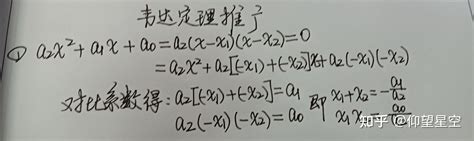 韦达定理推广
① a₂x²+a₁x+a₀=a₂(x-x₁)(x-x₂)=0
=a₂x²+a₂[(-x₁)+(-x₂)]x+a₂(-x₁)(-x₂)
对比系数得:a₂[(-x₁)+(-x₂)]=a₁ 即 x₁+x₂=-a₁/a₂
a₂(-x₁)(-x₂)=a₀ x₁x₂=a₀
知乎 @仰望星空